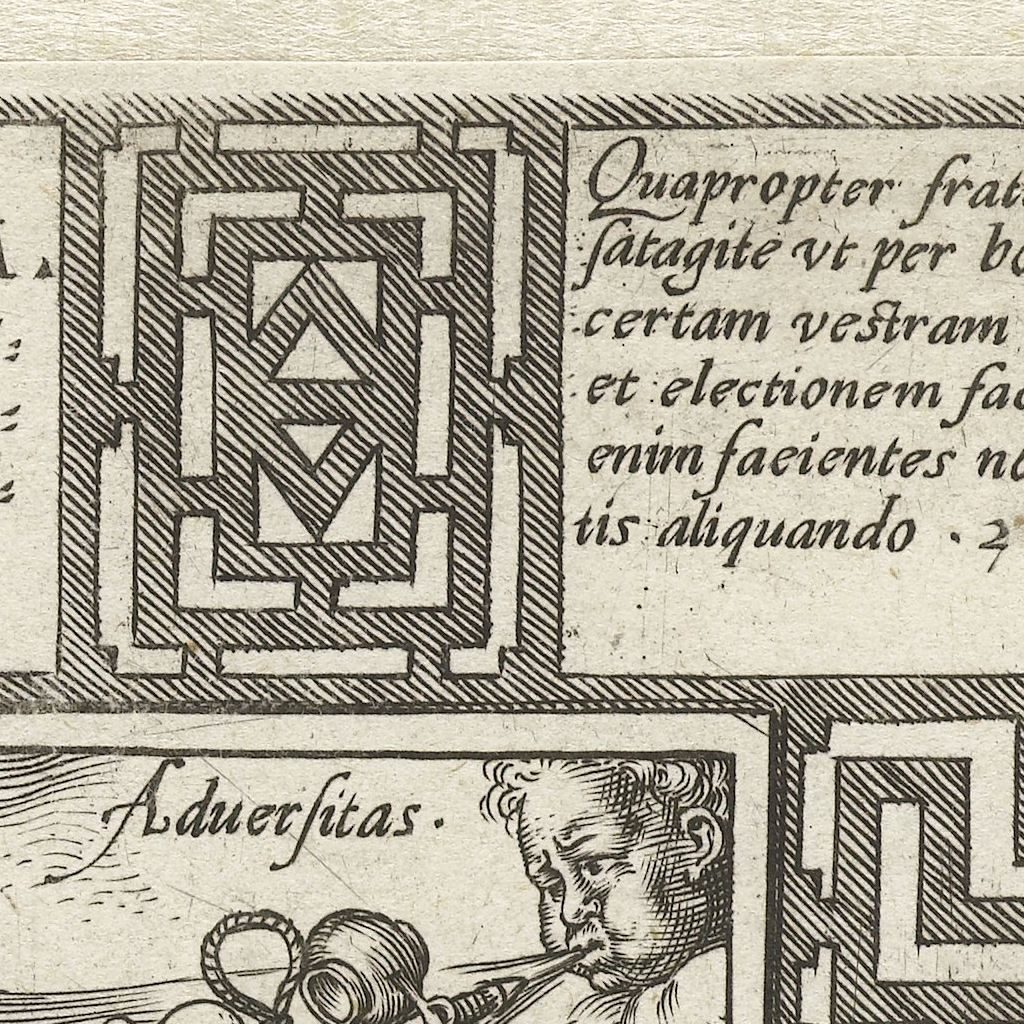 Quapropter frat
satagite vt per bo
certam vestram
et electionem fac
enim faeientes no
tis aliquando . 2
Aduersitas.